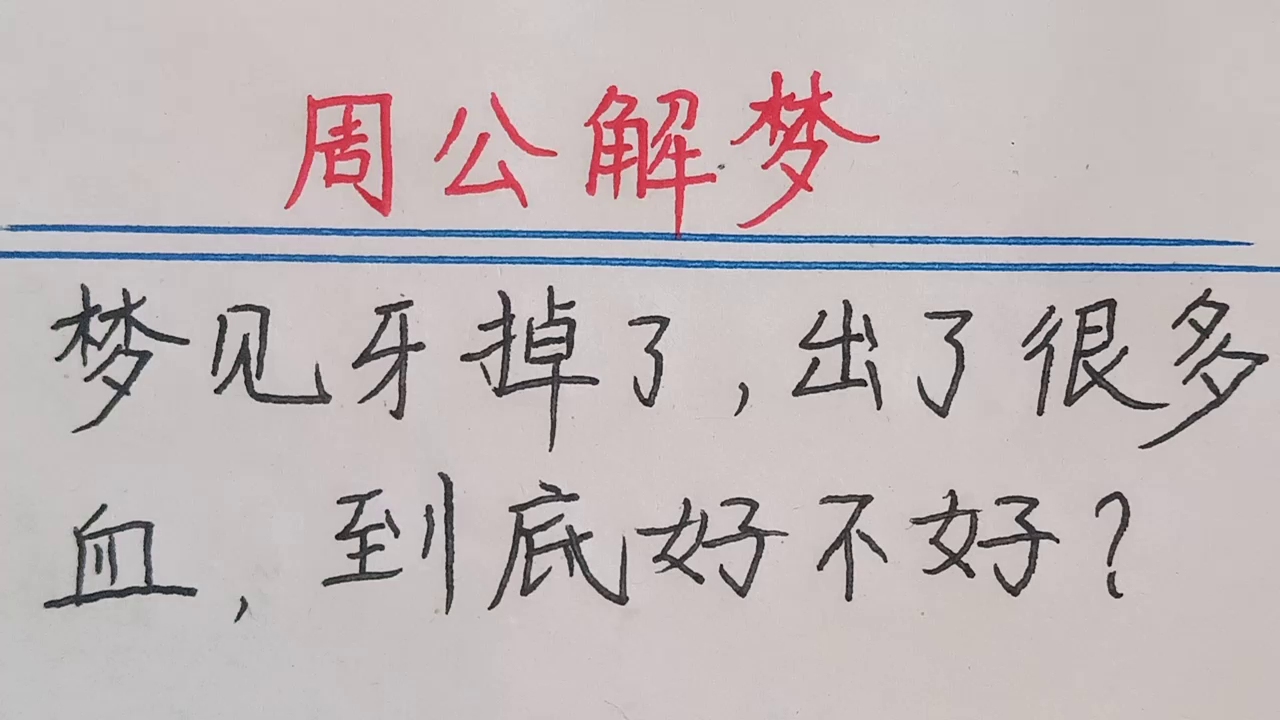 周公解梦
梦见牙掉了,出了很多
血,到底好不好?